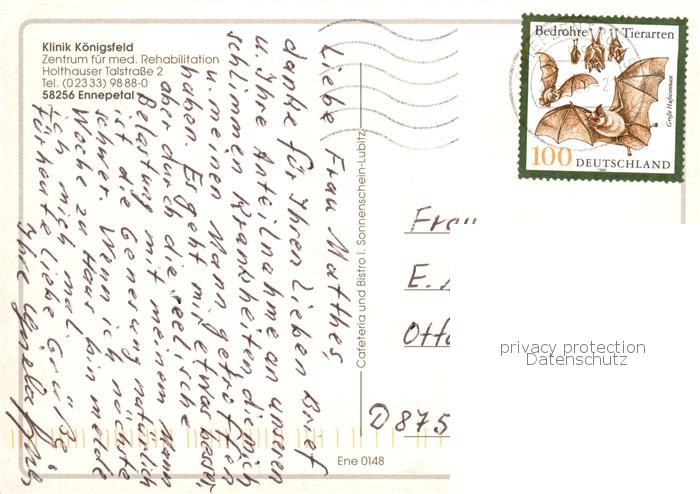 Klinik Königsfeld
Zentrum für med. Rehabilitation
Holthauser Talstraße 2
Tel. (0 23 33) 98 88-0
58256 Ennepetal
Liebe Frau Matthes,
danke für Ihren lieben Brief
u. Ihre Anteilnahme an unseren
schlimmen Krankheiten die mich
u. meinen Mann getroffen
haben. Es geht mir etwas besser,
aber durch die seelische
Belastung mit meinem Mann
ist die Genesung natürlich
schwer. Wenn ich nächste
Woche zu Haus bin melde
ich mich mal.
für heute liebe Grüße
Ihre
Cafeteria und Bistro I. Sonnenschein-Lubitz
Bedrohte Tierarten
Große Hufeisennase
100 DEUTSCHLAND
1999
Frau
E.
Otto
D 875
privacy protection
Datenschutz
Ene 0148